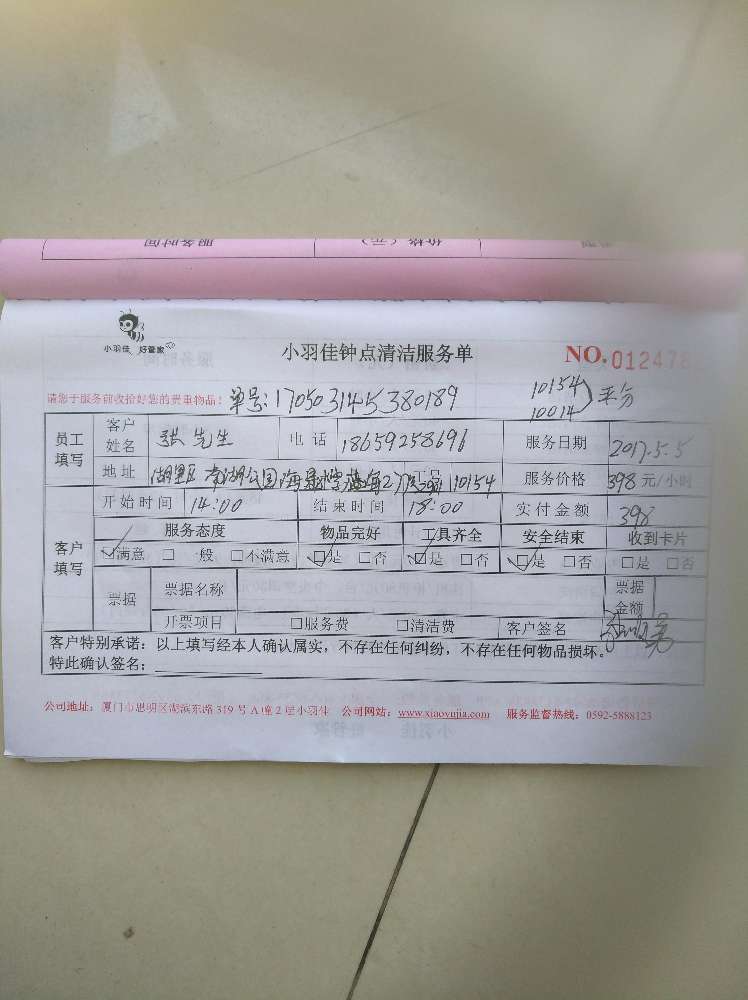 小羽佳 好管家
小羽佳钟点清洁服务单
NO.012476
请您于服务前收拾好您的贵重物品!
单号:170503145380189
10154
10014
平分
员工填写
客户姓名
洪先生
电话
18659258696
服务日期
2017.5.5
地址
湖里区
10154
服务价格
398 元/小时
客户填写
开始时间
14:00
结束时间
18:00
实付金额
398
服务态度
物品完好
工具齐全
安全结束
收到卡片
满意 □一般 □不满意
□是 □否
□是 □否
□是 □否
□是 □否
票据
票据名称
票据金额
开票项目
□服务费
□清洁费
客户签名
客户特别承诺:以上填写经本人确认属实,不存在任何纠纷,不存在任何物品损坏。
特此确认签名:
公司地址:厦门市思明区湖滨东路 319 号 A 幢 2 层小羽佳 公司网站:www.xiaoyujia.com 服务监督热线:0592-5888123